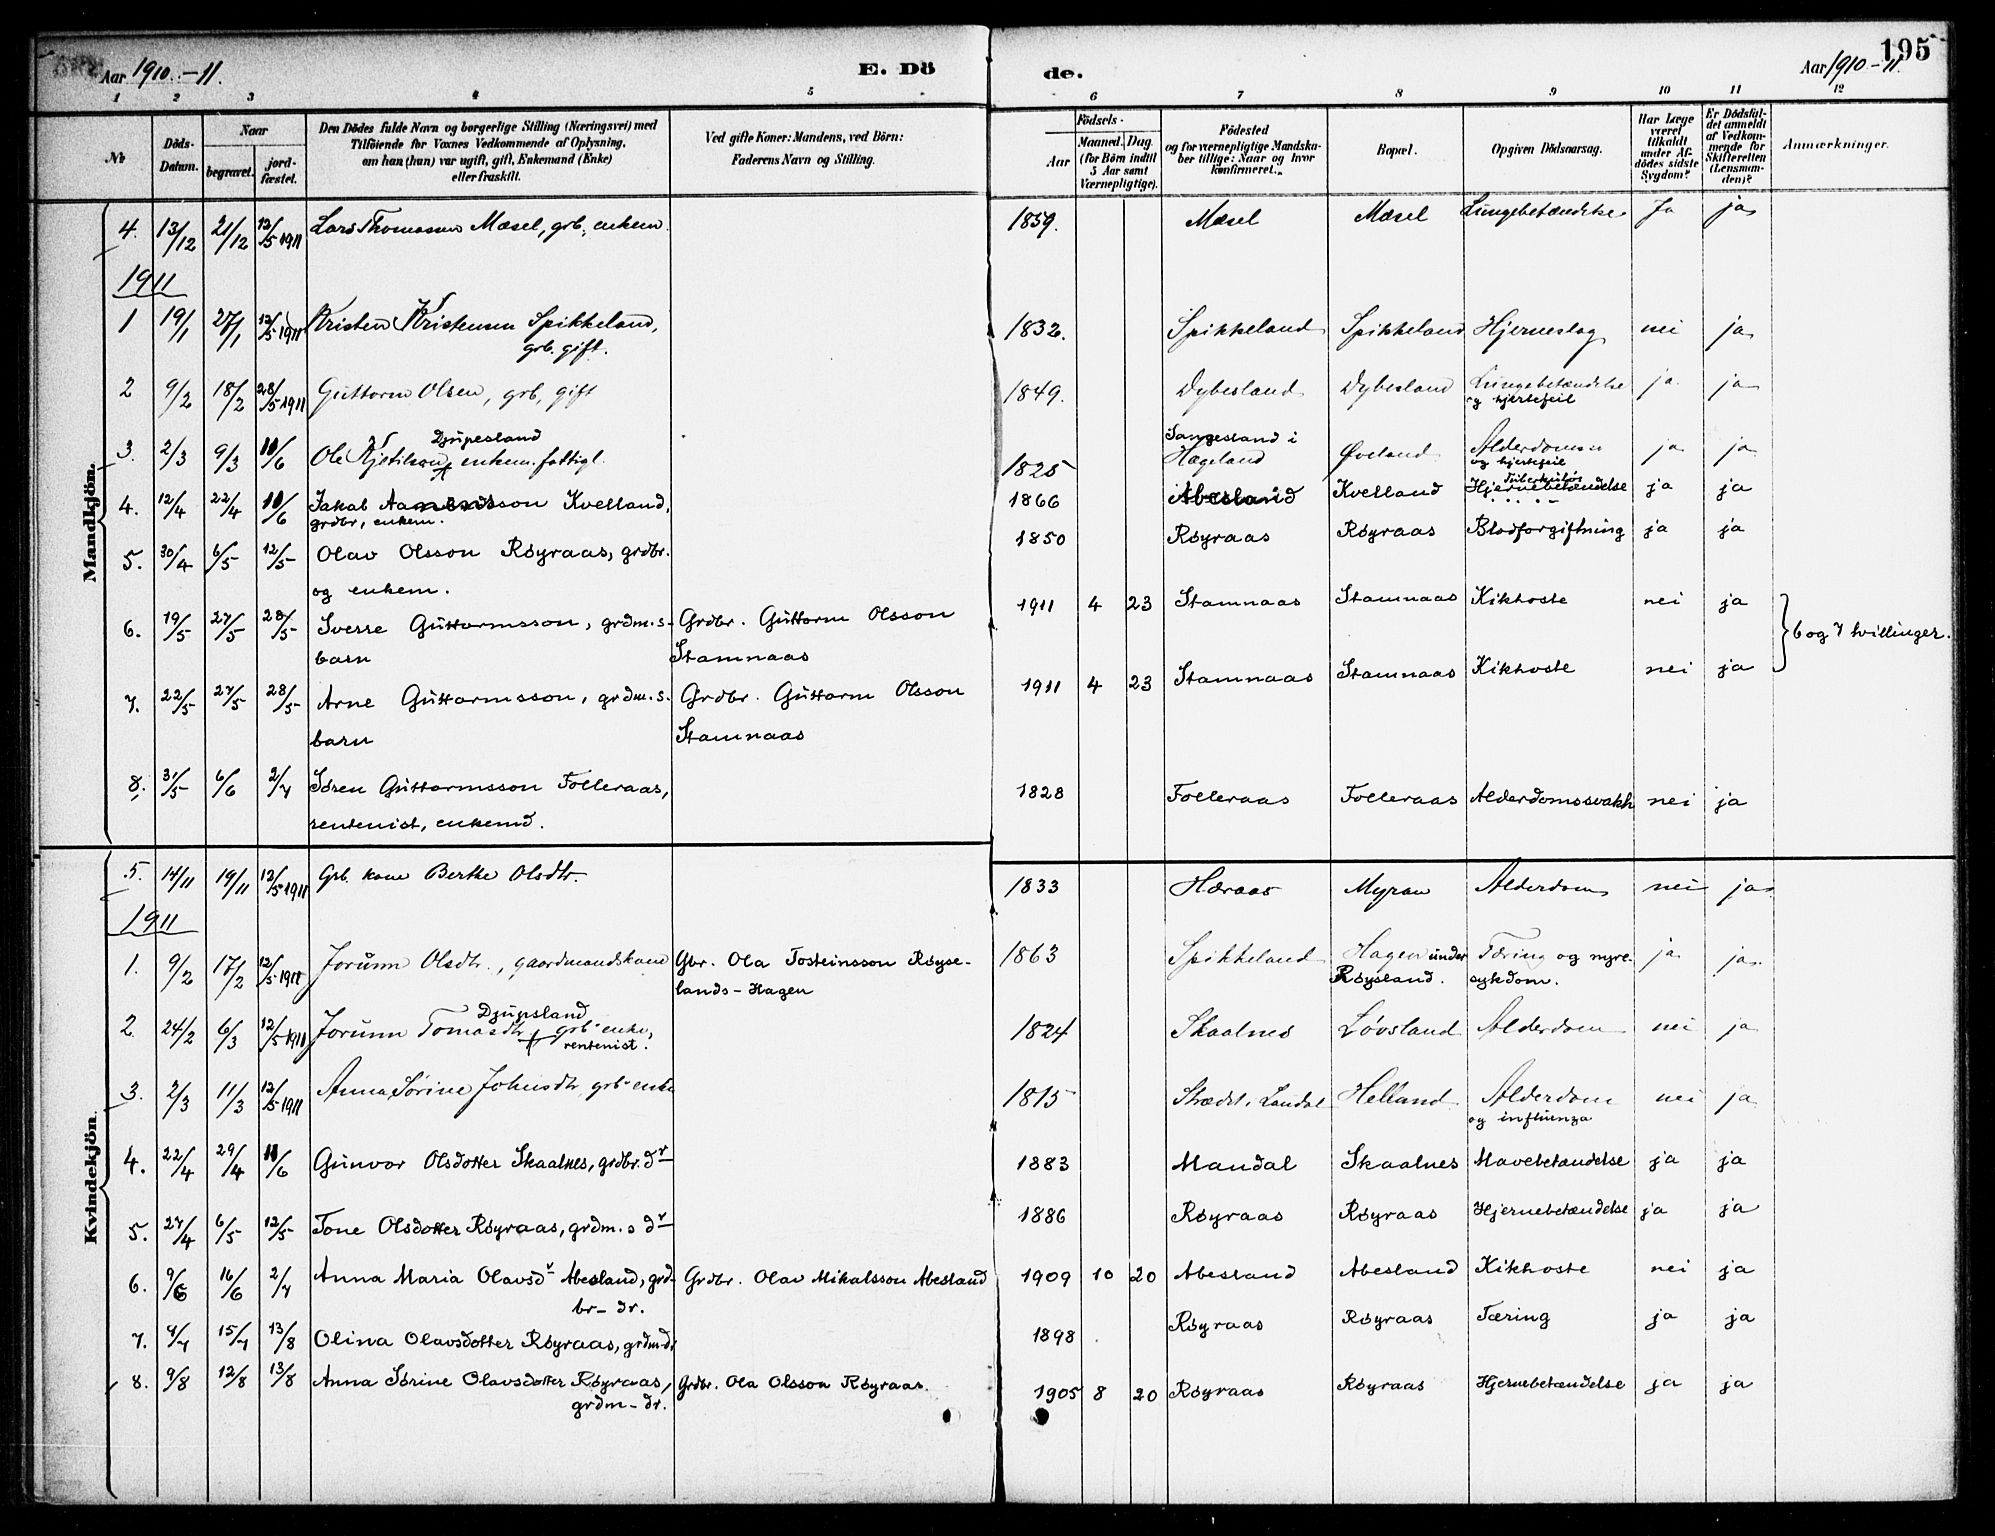 Aar 1910.-11.
E. Dö
de.
Aar 1910-11.
195
1 2 3 4 5 6 7 8 9 10 11 12
No
Döds-Datum.
Naar
begravet.
jord-fæstet.
Den Dödes fulde Navn og borgerlige Stilling (Næringsvei) med
Tilföiende for Voxnes Vedkommende af Oplysning,
om han (hun) var ugift, gift, Enkemand (Enke)
eller fraskilt.
Ved gifte Koner: Mandens, ved Börn:
Faderens Navn og Stilling.
Födsels-
Aar
Maaned. Dag.
(for Börn indtil
5 Aar samt
Værnepligtige).
Födested
og for værnepligtige Mandska-
ber tillige: Naar og hvor
konfirmeret.
Bopæl.
Opgiven Dödsaarsag.
Har Læge
været
tilkaldt
under Af-
dödes sidste
Sygdom?
Er Dödsfal-
det anmeldt
af Vedkom-
mende for
Skifteretten
(Lensman-
den)?
Anmærkninger.
Mandkjön.
4. 13/12 21/12 13/5 1911 Lars Thomassen Mæsel, grb., enkem. 1859. Mæsel Mæsel Lungebetændelse Ja ja
1911
1 19/1 27/1 12/5 1911 Kristen Kristensen Spikkeland, 1832. Spikkeland Spikkeland Hjerneslag nei ja
grb. gift.
2 9/2 18/2 28/5 1911 Guttorm Olsen, grb, gift 1849. Dybesland Dybesland Lungebetændelse ja ja
og hjertefeil
Djupesland
3. 2/3 9/3 11/6 Ole Kjetilson, enkem. fattigl. 1825 Sangesland i Øveland Alderdom ja ja
Hægeland og hjertefeil
Tuberkuløs
4. 12/4 22/4 11/6 Jakob Aamundsson Kvelland, 1866 Abesland Kvelland Hjernebetændelse ja ja
grdbr, enkem.
5. 30/4 6/5 12/5 Olav Olsson Røyraas, grdbr. 1850 Røyraas Røyraas Blodforgiftning ja ja
og enkem.
6. 19/5 27/5 28/5 Sverre Guttormsson, grdm.s- Grdbr. Guttorm Olsson 1911 4 23 Stamnaas Stamnaas Kikhoste nei ja
barn Stamnaas
6 og 7 tvillinger.
7. 22/5 27/5 28/5 Arne Guttormsson, grdm.s. Grdbr. Guttorm Olsson 1911 4 23 Stamnaas Stamnaas Kikhoste nei ja
barn Stamnaas
8. 31/5 6/6 2/7 Søren Guttormsson Folleraas, 1828 Folleraas Folleraas Alderdomssvakh nei ja
rentenist, enkemd.
Kvindekjön.
5. 14/11 19/11 12/5 1911 Grb. kone Berthe Olsdtr. 1833 Høraas Myran Alderdom nei ja
1911
1. 9/2 17/2 12/5 1911 Jorunn Olsdtr., gaardmandskone Gbr. Ola Tosteinsson Røyse- 1863 Spikkeland Hagen under Tæring og nyre- ja ja
lands-Hagen Røysland. sykdom.
Djupsland
2. 24/2 6/3 12/5 1911 Jorunn Tomasdtr grb.enke, 1824 Skaalnes Løvsland Alderdom nei ja
rentenist.
3. 2/3 11/3 12/5 1911 Anna Sørine Johnsdtr, grb. enke 1815 Laudal Helland Alderdom nei ja
og influenza
4. 22/4 29/4 11/6 Gunvor Olsdotter Skaalnes, grdbr. dr 1883 Mandal Skaalnes Mavebetændelse ja ja
5. 27/4 6/5 12/5 Tone Olsdotter Røyraas, grdm.s dr 1886 Røyraas Røyraas Hjernebetændelse ja ja
6. 9/6 16/6 2/7 Anna Maria Olavsdr Abesland, grd- Grdbr. Olav Mikalsson Abesland 1909 10 20 Abesland Abesland Kikhoste nei ja
br-dr.
7. 4/7 15/7 13/8 Olina Olavsdotter Røyraas, grdm-dr 1898 Røyraas Røyraas Tæring ja ja
8. 9/8 12/8 13/8 Anna Sørine Olavsdotter Røyraas, Grdbr. Ola Olsson Røyraas. 1905 8 20 Røyraas Røyraas Hjernebetændelse ja ja
grdm-dr.